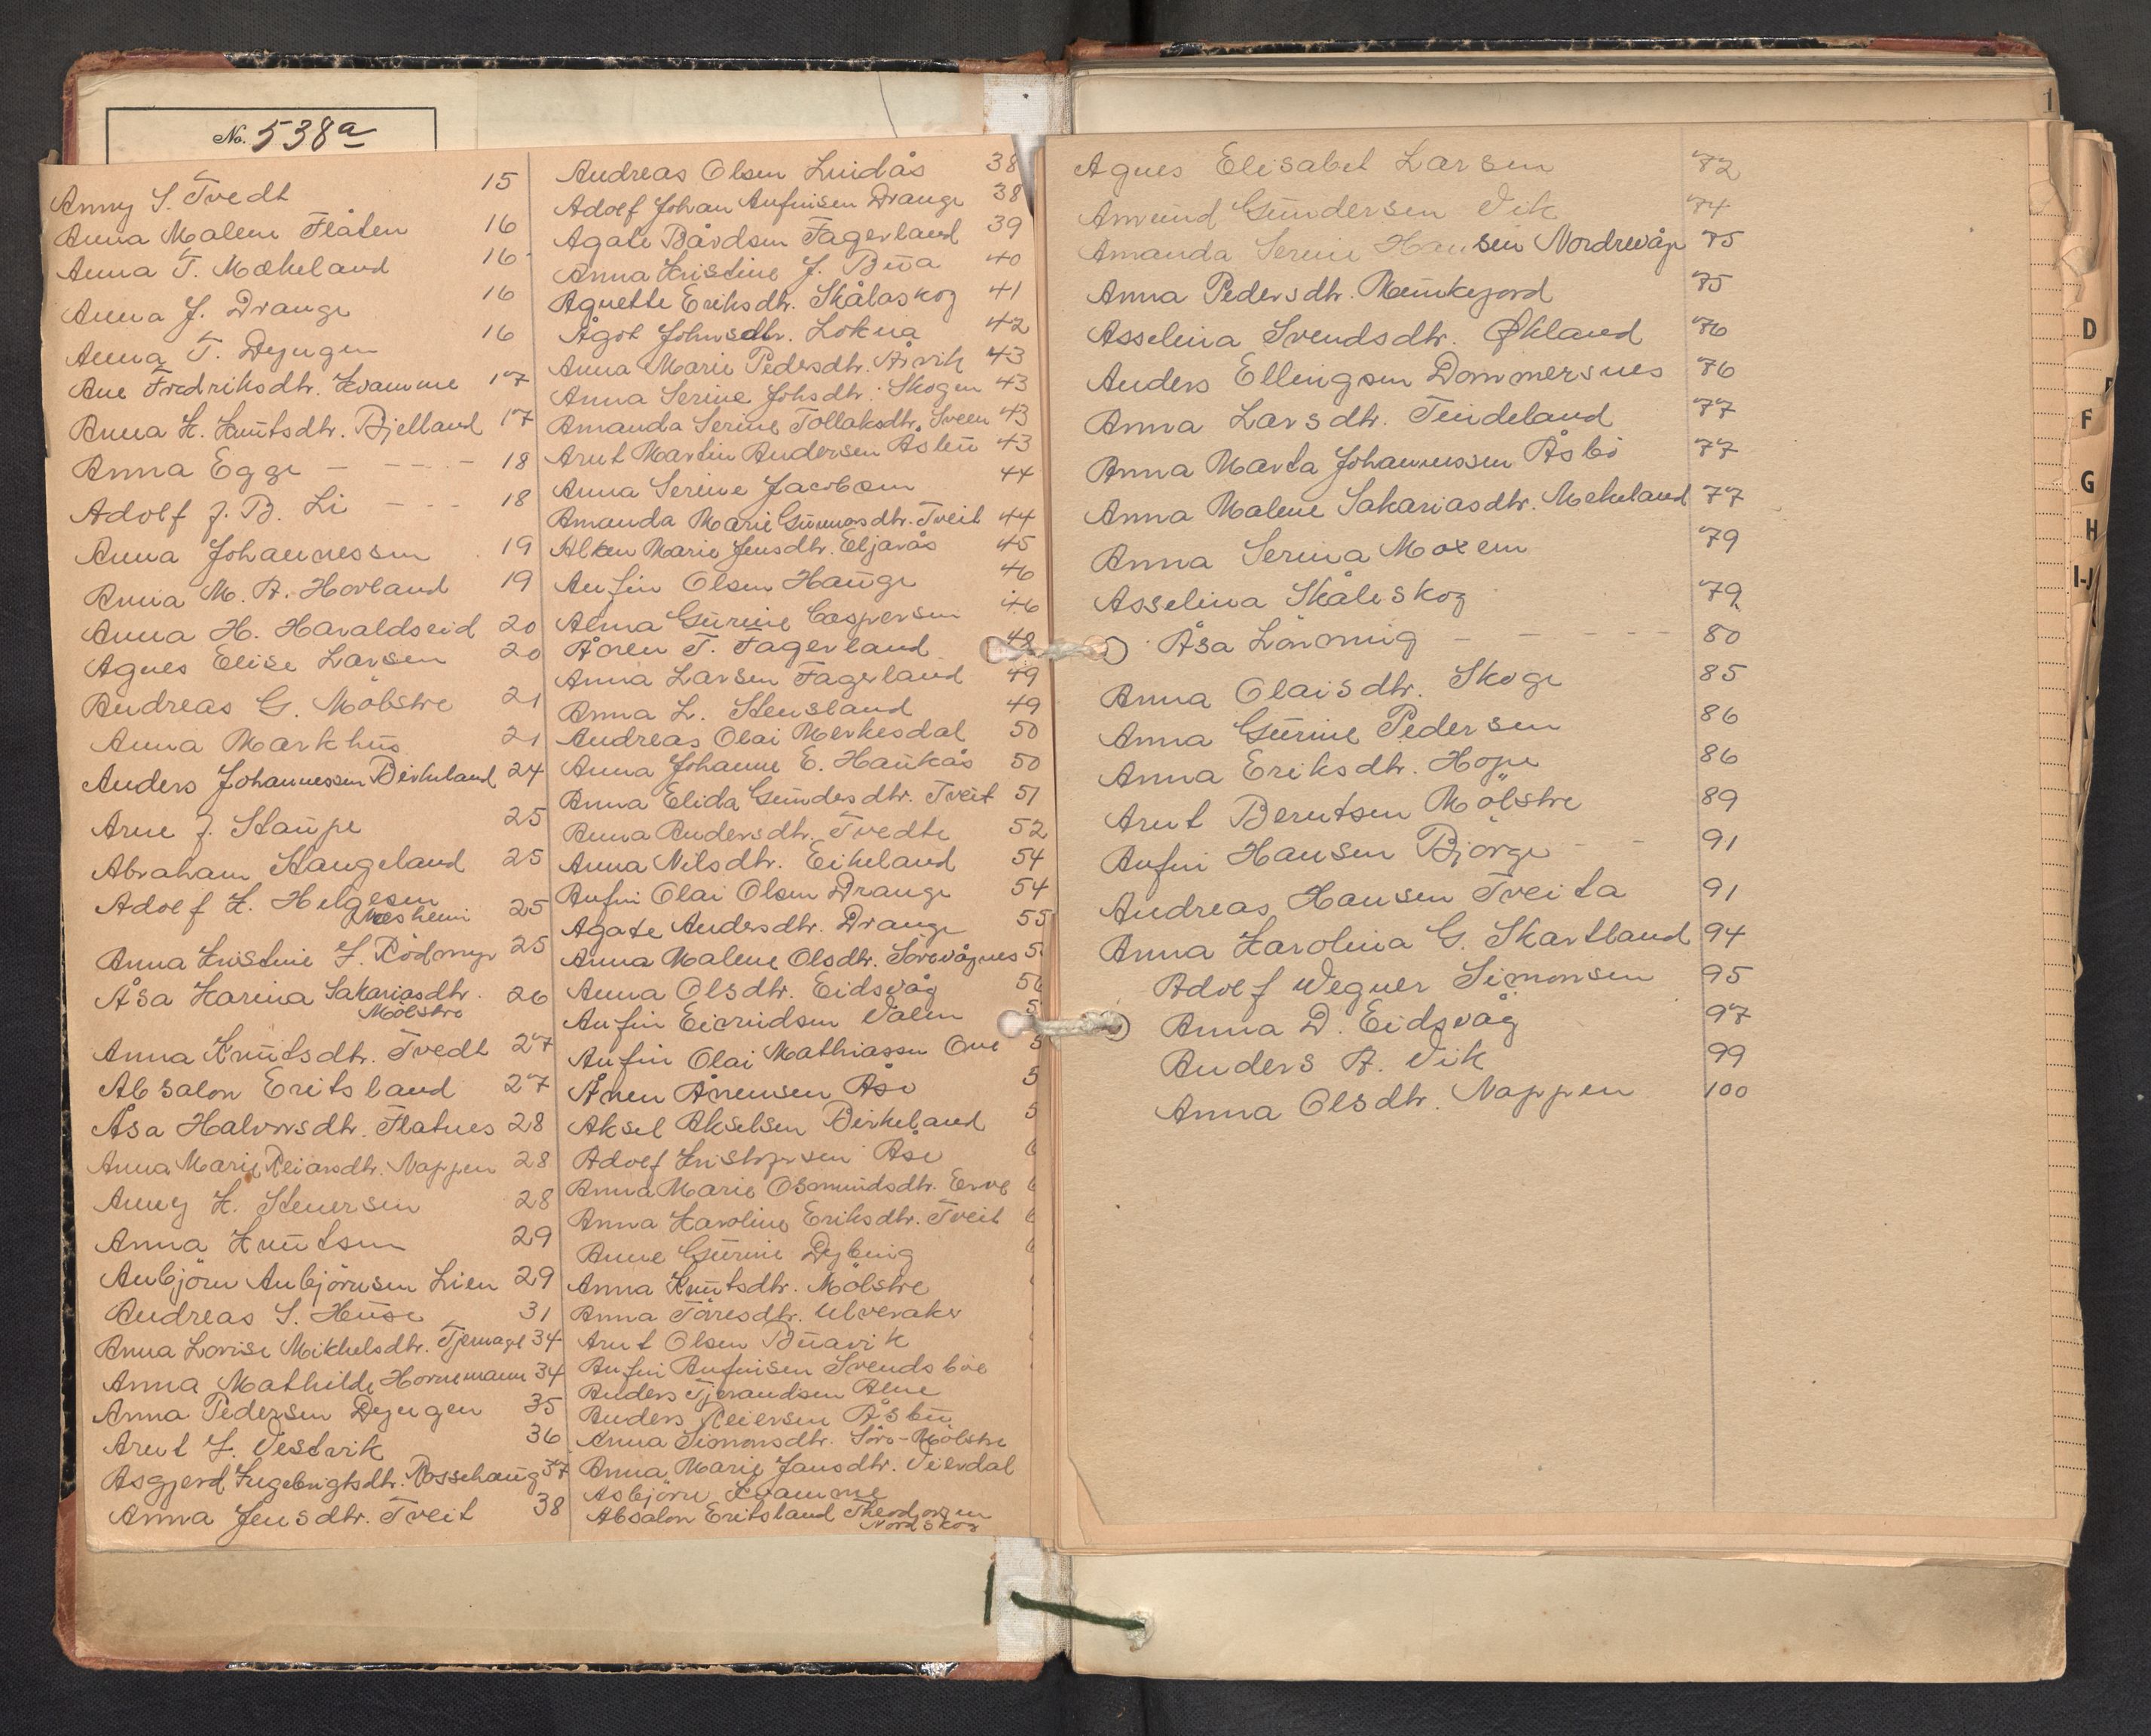 No. 538a
Anny S. Tvedt 15
Anna Malene Flåten 16
Anna T. Mækeland 16
Anna J. Drange 16
Anna T. Dyngen 16
Ane Fredriksdtr. Kvamme 17
Anna K. Knutsdtr. Bjelland 17
Anna Egge - - - - 18
Adolf J. B. Li - - - 18
Anna Johannessen 19
Anna M. A. Hovland 19
Anna H. Haraldseid 20
Agnes Elise Larsen 20
Andreas G. Mölstre 21
Anna Markhus 21
Anders Johannessen Birkeland 24
Arne J. Staupe 25
Abraham Stangeland 25
Adolf K. Helgesen
Næsheim 25
Anna Kristine J. Rödmyr 25
Åsa Karina Sakariasdtr. 26
Mölstre
Anna Knutsdtr. Tvedt 27
Absalon Eritsland 27
Åsa Halvorsdtr. Flatnes 28
Anna Marie Reiarsdtr. Nappen 28
Anny K. Stenersen 28
Anna Knutsen 29
Anbjörn Anbjörnsen Lien 29
Andreas S. Huse 31
Anna Lovise Mikkelsdtr. Tjernagel 34
Anna Mathilde Hornemann 34
Anna Pedersen Dyngen 35
Arnt J. Vestvik 36
Asgjerd Ingebrigtsdtr. Rossehaug 37
Anna Jensdtr. Tveit 38
Andreas Olsen Lindås 38
Adolf Johan Anfinsen Drange 38
Agate Bårdsen Fagerland 39
Anna Kristine J. Bua 40
Agnette Eriksdtr. Skålaskog 41
Ågot Johnsdtr. Lokna 42
Anna Marie Pedersdtr. Årvik 43
Anna Serine Johsdtr. Skogen 43
Amanda Serine Tollaksdtr. Sveen 43
Arnt Martin Andersen Åsbu 43
Anna Serine Jacobsen 44
Amanda Marie Gunnarsdtr. Tveit 44
Alken Marie Jensdtr. Eljarås 45
Anfin Olsen Hauge 46
Alma Gurine Caspersen 46
Åren T. Fagerland 48
Anna Larsen Fagerland 49
Anna L. Stensland 49
Andreas Olai Merkesdal 50
Anna Johanne E. Haukås 50
Anna Elida Gundesdtr. Tveit 51
Anna Andersdtr. Tvedte 52
Anna Nilsdtr. Eikeland 54
Anfin Olai Olsen Drange 54
Agate Andersdtr. Drange 55
Anna Malene Olsdtr. Sörevågnes 5
Anna Olsdtr. Eidsvåg 56
Anfin Eivindsen Valen 5
Anfin Olai Mathiassen Ove 5
Ånen Ånensen Åse 5
Aksel Akselsen Birkeland 5
Adolf Kristofersen Åse 6
Anna Marie Osmundsdtr. Erve 6
Anna Karoline Eriksdtr. Tveit 6
Anne Gurine Dybing
Anna Knutsdtr. Mölstre
Anna Töresdtr. Ulveraker
Arnt Olsen Buavik
Anfin Anfinsen Svendsböe
Anders Tjerandsen Alne
Anders Reiersen Åsbu
Anna Simonsdtr. Söre-Mölstre
Anna Marie Jansdtr. Veierdal
Asbjörn Kvamme
Absalon Eritsland Theodorsen
Nordskog
1
Agnes Elisabet Larsen 72
Amund Gundersen Vik 74
Amanda Serine Hansen Nordrevåge 75
Anna Pedersdtr. Munkejord 75
Asselina Svendsdtr. Økland 76
Anders Ellingsen Dommersnes 76
Anna Larsdtr. Tindeland 77
Anna Marta Johannessen Åsbö 77
Anna Malene Sakariasdtr. Mekeland 77
Anna Serina Moxem 79
Asselina Skåleskog 79
Åsa Lönning - - - - - 80
Anna Olaisdtr. Skoge 85
Anna Gurine Pedersen 86
Anna Eriksdtr. Hope 86
Arnt Berntsen Mölstre 89
Anfin Hansen Björge - - 91
Andreas Hansen Tveita 91
Anna Karolina G. Skartland 94
Adolf Wegner Simonsen 95
Anna D. Eidsvåg 97
Anders A. Vik 99
Anna Olsdtr. Nappen 100
D
F
G
H
I-J